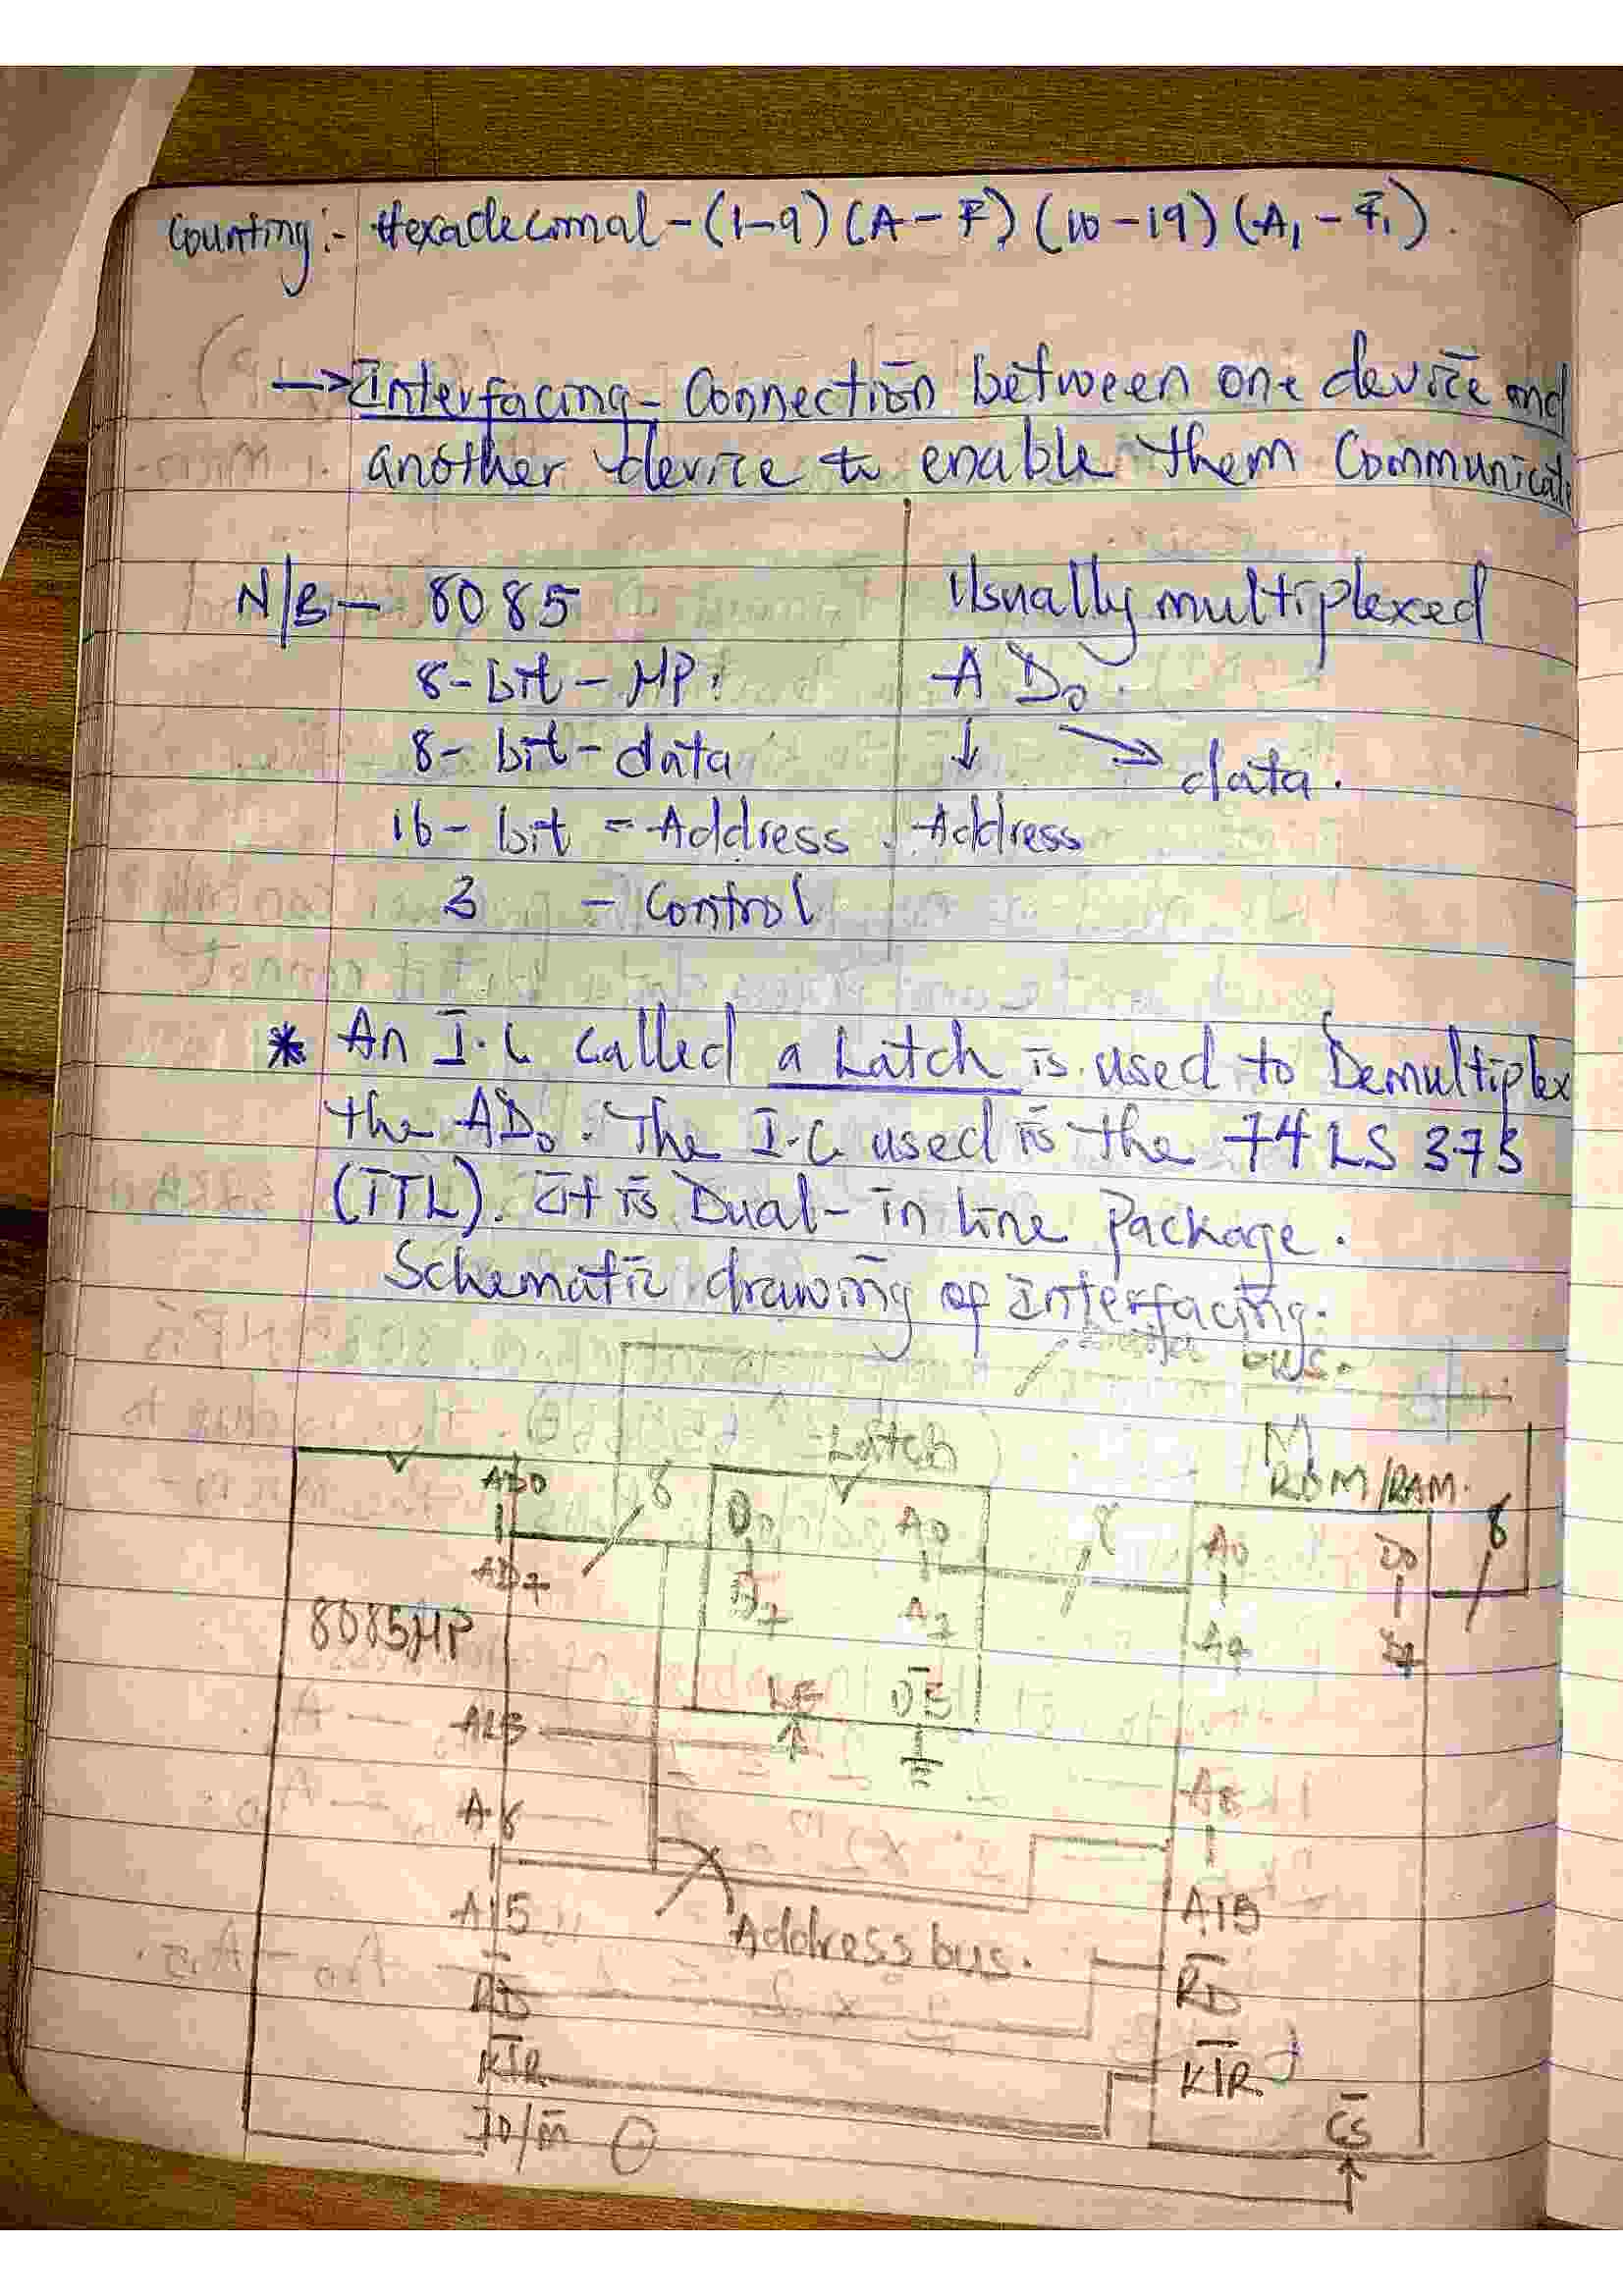 Counting:- Hexadecimal - (1-9) (A - F) (10 - 19) (A1 - F1).
→ Interfacing - Connection between one device and
another device to enable them Communicate
N/B - 8085
8-bit - MP.
8- bit - data
16- bit = Address.
3 - Control
Usually multiplexed
A D0.
↓ → data.
Address
* An I.C called a Latch is used to Demultiplex
the AD0. The I.C used is the 74 LS 373
(TTL). It is Dual- in line package.
Schematic drawing of interfacing.
bus.
Latch
M
ROM/RAM.
AD0
8
D0
A0
8
A0
D0
8
AD7
D7
A7
A7
8085MP
LE
OE
A8
A8
A15
Address bus.
A15
RD
RD
IO/M
CS